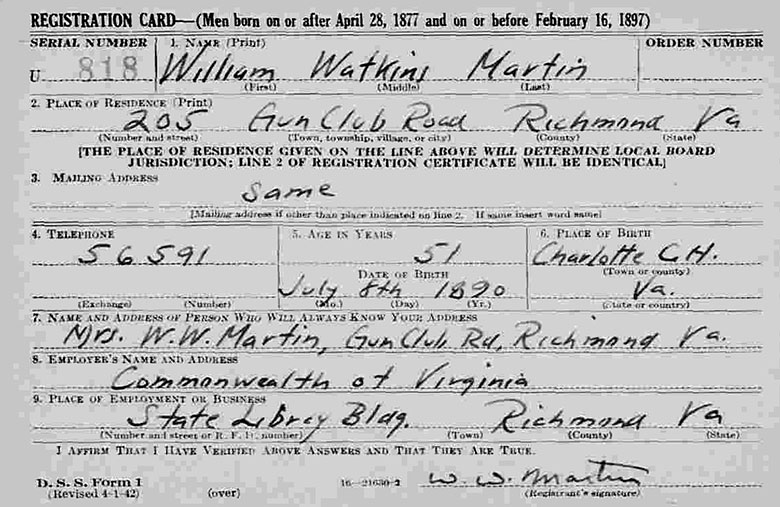 REGISTRATION CARD—(Men born on or after April 28, 1877 and on or before February 16, 1897)
SERIAL NUMBER 1. NAME (Print) ORDER NUMBER
U 818 William Watkins Martin
(First) (Middle) (Last)
2. PLACE OF RESIDENCE (Print)
205 Gun Club Road Richmond Va
(Number and street) (Town, township, village, or city) (County) (State)
[THE PLACE OF RESIDENCE GIVEN ON THE LINE ABOVE WILL DETERMINE LOCAL BOARD
JURISDICTION; LINE 2 OF REGISTRATION CERTIFICATE WILL BE IDENTICAL]
3. MAILING ADDRESS
Same
[Mailing address if other than place indicated on line 2. If same insert word same]
4. TELEPHONE 5. AGE IN YEARS 6. PLACE OF BIRTH
56591 51 Charlotte C.H.
DATE OF BIRTH (Town or county)
July 8th 1890 Va.
(Exchange) (Number) (Mo.) (Day) (Yr.) (State or country)
7. NAME AND ADDRESS OF PERSON WHO WILL ALWAYS KNOW YOUR ADDRESS
Mrs. W.W. Martin, Gun Club Rd, Richmond Va.
8. EMPLOYER'S NAME AND ADDRESS
Commonwealth of Virginia
9. PLACE OF EMPLOYMENT OR BUSINESS
State Libray Bldg. Richmond Va
(Number and street or R. F. D. number) (Town) (County) (State)
I AFFIRM THAT I HAVE VERIFIED ABOVE ANSWERS AND THAT THEY ARE TRUE.
W. W. Martin
D. S. S. Form 1 16—21630-2
(Revised 4-1-42) (over) (Registrant's signature)